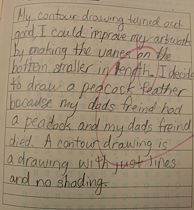 My contour drawing turned out
good, I could improve my artwork
by making the vanes on the
bottom smaller in length. I decide
to draw a peacock feather
because my dads freind had
a peacock and my dads freind
died. A contour drawing is
a drawing with just lines
and no shading.